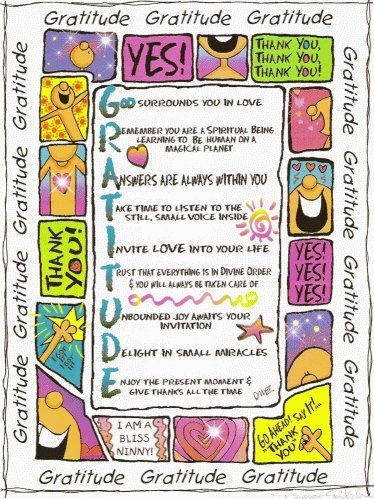 Gratitude Gratitude Gratitude
Gratitude
Gratitude
Gratitude
Gratitude
Gratitude
Gratitude
Gratitude
Gratitude
Gratitude
Gratitude
Gratitude Gratitude Gratitude Gratitude
YES!
THANK YOU,
THANK YOU,
THANK YOU!
GOD SURROUNDS YOU IN LOVE
REMEMBER YOU ARE A SPIRITUAL BEING
LEARNING TO BE HUMAN ON A
MAGICAL PLANET
ANSWERS ARE ALWAYS WITHIN YOU
TAKE TIME TO LISTEN TO THE
STILL, SMALL VOICE INSIDE
INVITE LOVE INTO YOUR LIFE
TRUST THAT EVERYTHING IS IN DIVINE ORDER
& YOU WILL ALWAYS BE TAKEN CARE OF
UNBOUNDED JOY AWAITS YOUR
INVITATION
DELIGHT IN SMALL MIRACLES
ENJOY THE PRESENT MOMENT &
GIVE THANKS ALL THE TIME
THANK
YOU!
YES!
YES!
YES!
I AM A
BLISS
NINNY!
GO AHEAD! SAY IT...
"THANK
YOU"